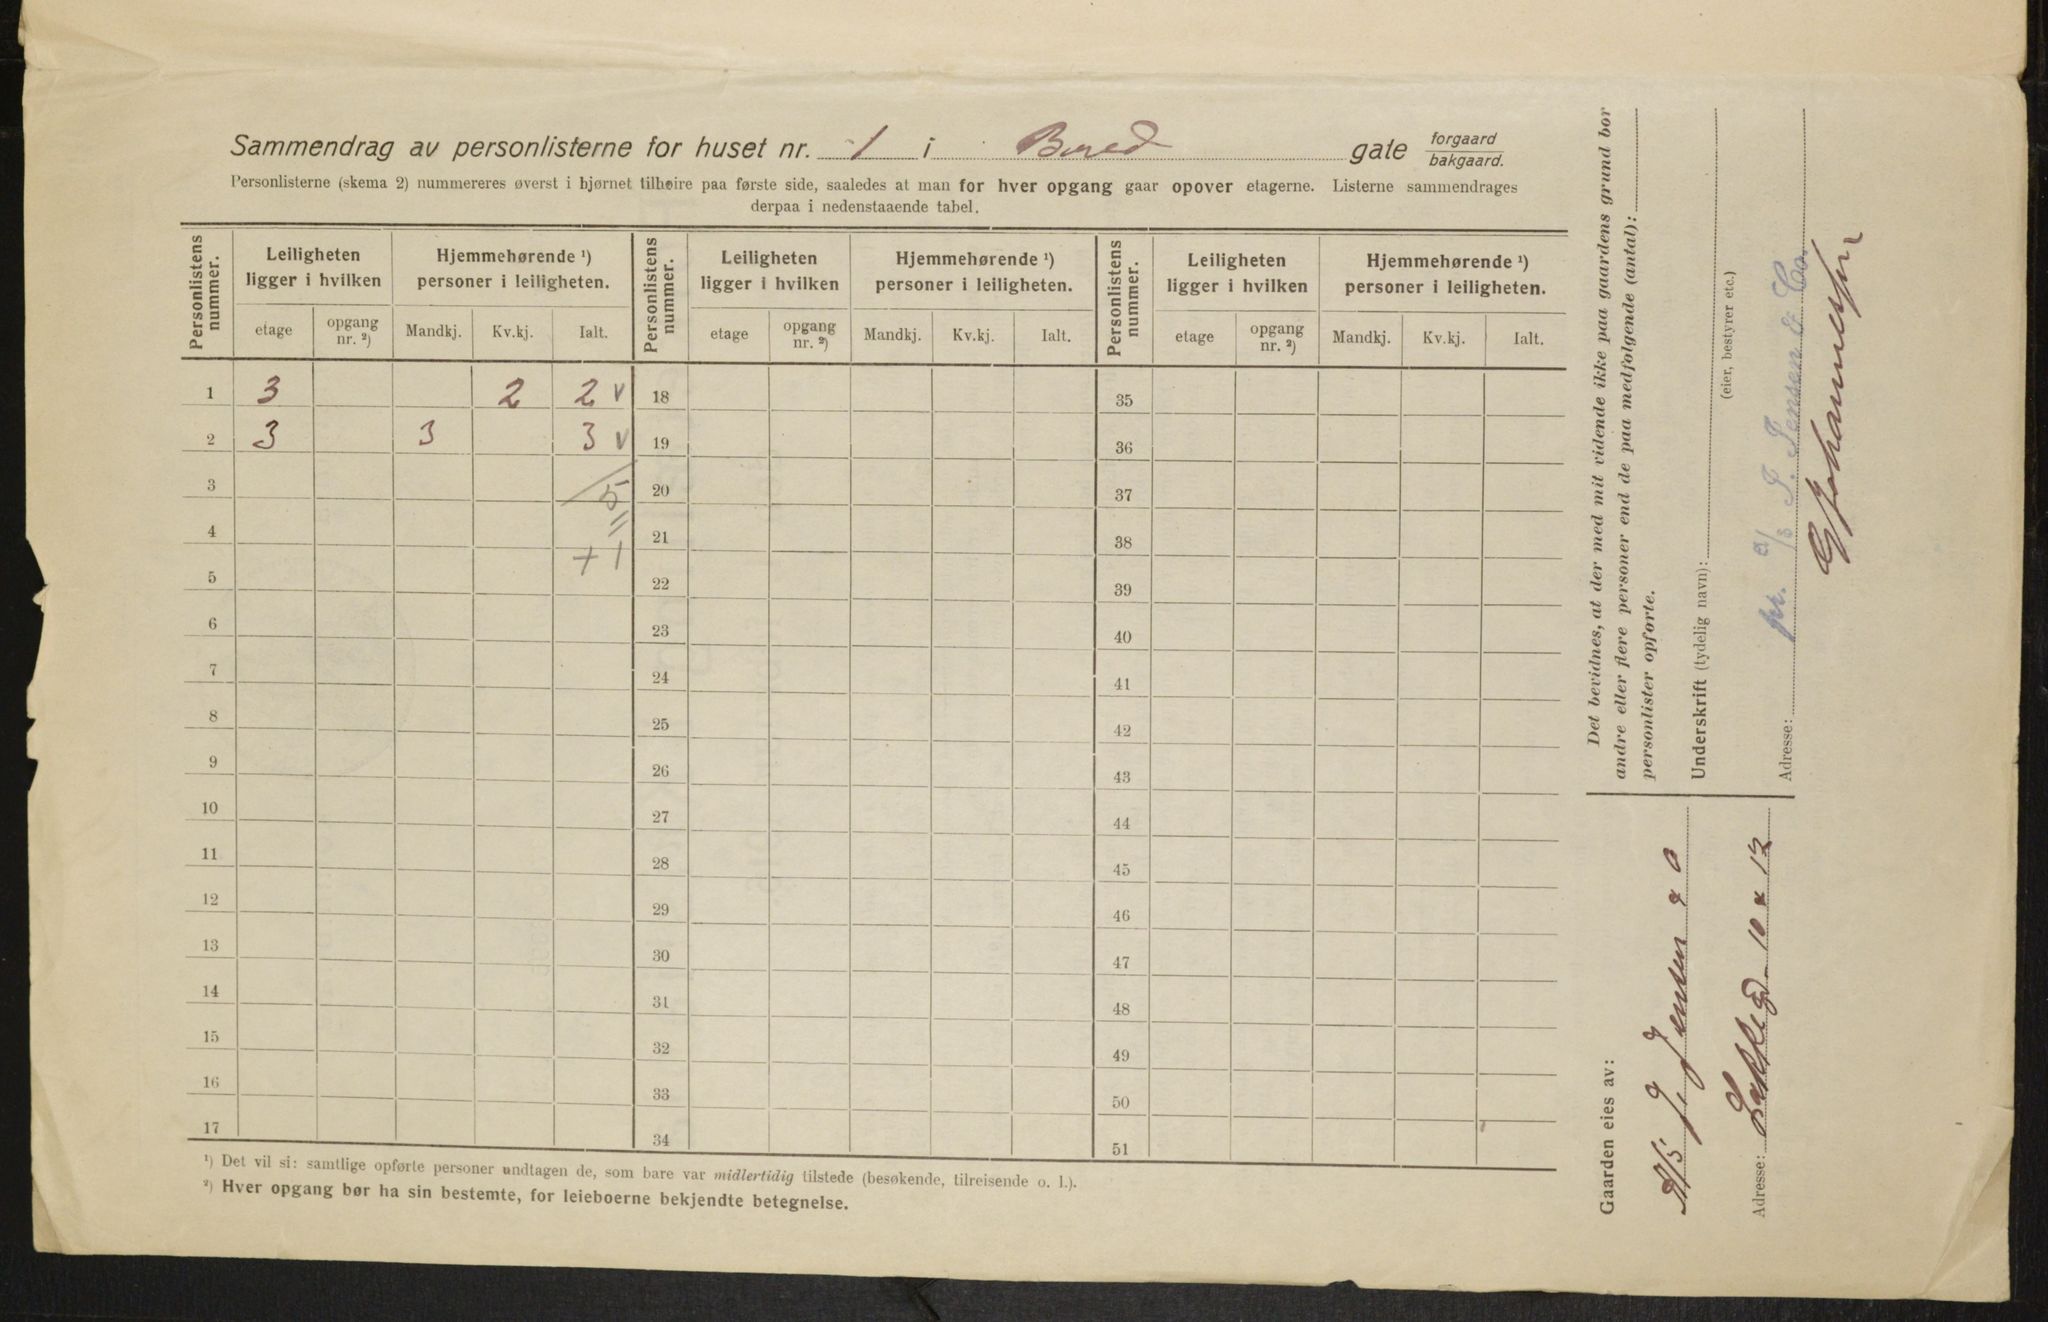 Sammendrag av personlisterne for huset nr. 1 i gate forgaard bakgaard.
Personlisterne (skema 2) nummereres øverst i hjørnet tilhøire paa første side, saaledes at man for hver opgang gaar opover etagerne. Listerne sammendrages
derpaa i nedenstaaende tabel.
Personlistens nummer. Leiligheten ligger i hvilken Hjemmehørende ¹) personer i leiligheten. Personlistens nummer. Leiligheten ligger i hvilken Hjemmehørende ¹) personer i leiligheten. Personlistens nummer. Leiligheten ligger i hvilken Hjemmehørende ¹) personer i leiligheten.
etage opgang nr. ²) Mandkj. Kv.kj. Ialt. etage opgang nr. ²) Mandkj. Kv.kj. Ialt. etage opgang nr. ²) Mandkj. Kv.kj. Ialt.
1 3 2 2 v 18 35
2 3 3 3 v 19 36
3 5 20 37
4 21 38
+1
5 22 39
6 23 40
7 24 41
8 25 42
9 26 43
10 27 44
11 28 45
12 29 46
13 30 47
14 31 48
15 32 49
16 33 50
17 34 51
¹) Det vil si: samtlige opførte personer undtagen de, som bare var midlertidig tilstede (besøkende, tilreisende o. l.).
²) Hver opgang bør ha sin bestemte, for leieboerne bekjendte betegnelse.
Det bevidnes, at der med mit vidende ikke paa gaardens grund bor
andre eller flere personer end de paa medfølgende (antal):
personlister opførte.
Underskrift (tydelig navn):
(eier, bestyrer etc.)
pr. A/S J. Jensen & Co.
Adresse:
G Johannessen
Gaarden eies av:
A/S J. Jensen & Co
Adresse: 10 & 12